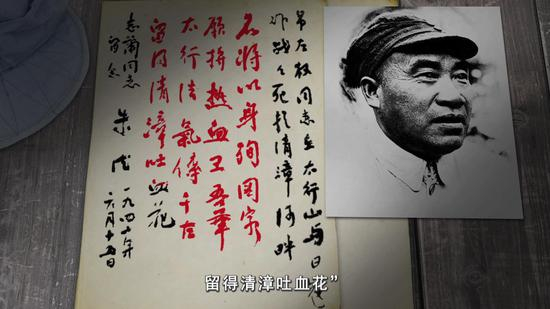 吊左权同志在太行山与日寇
作战々死于清漳河畔
名将以身殉国家
愿拚热血卫吾华
太行浩气传千古
留得清漳吐血花
志兰同志
留念
朱德
一九四二年
六月十五日
留得清漳吐血花”